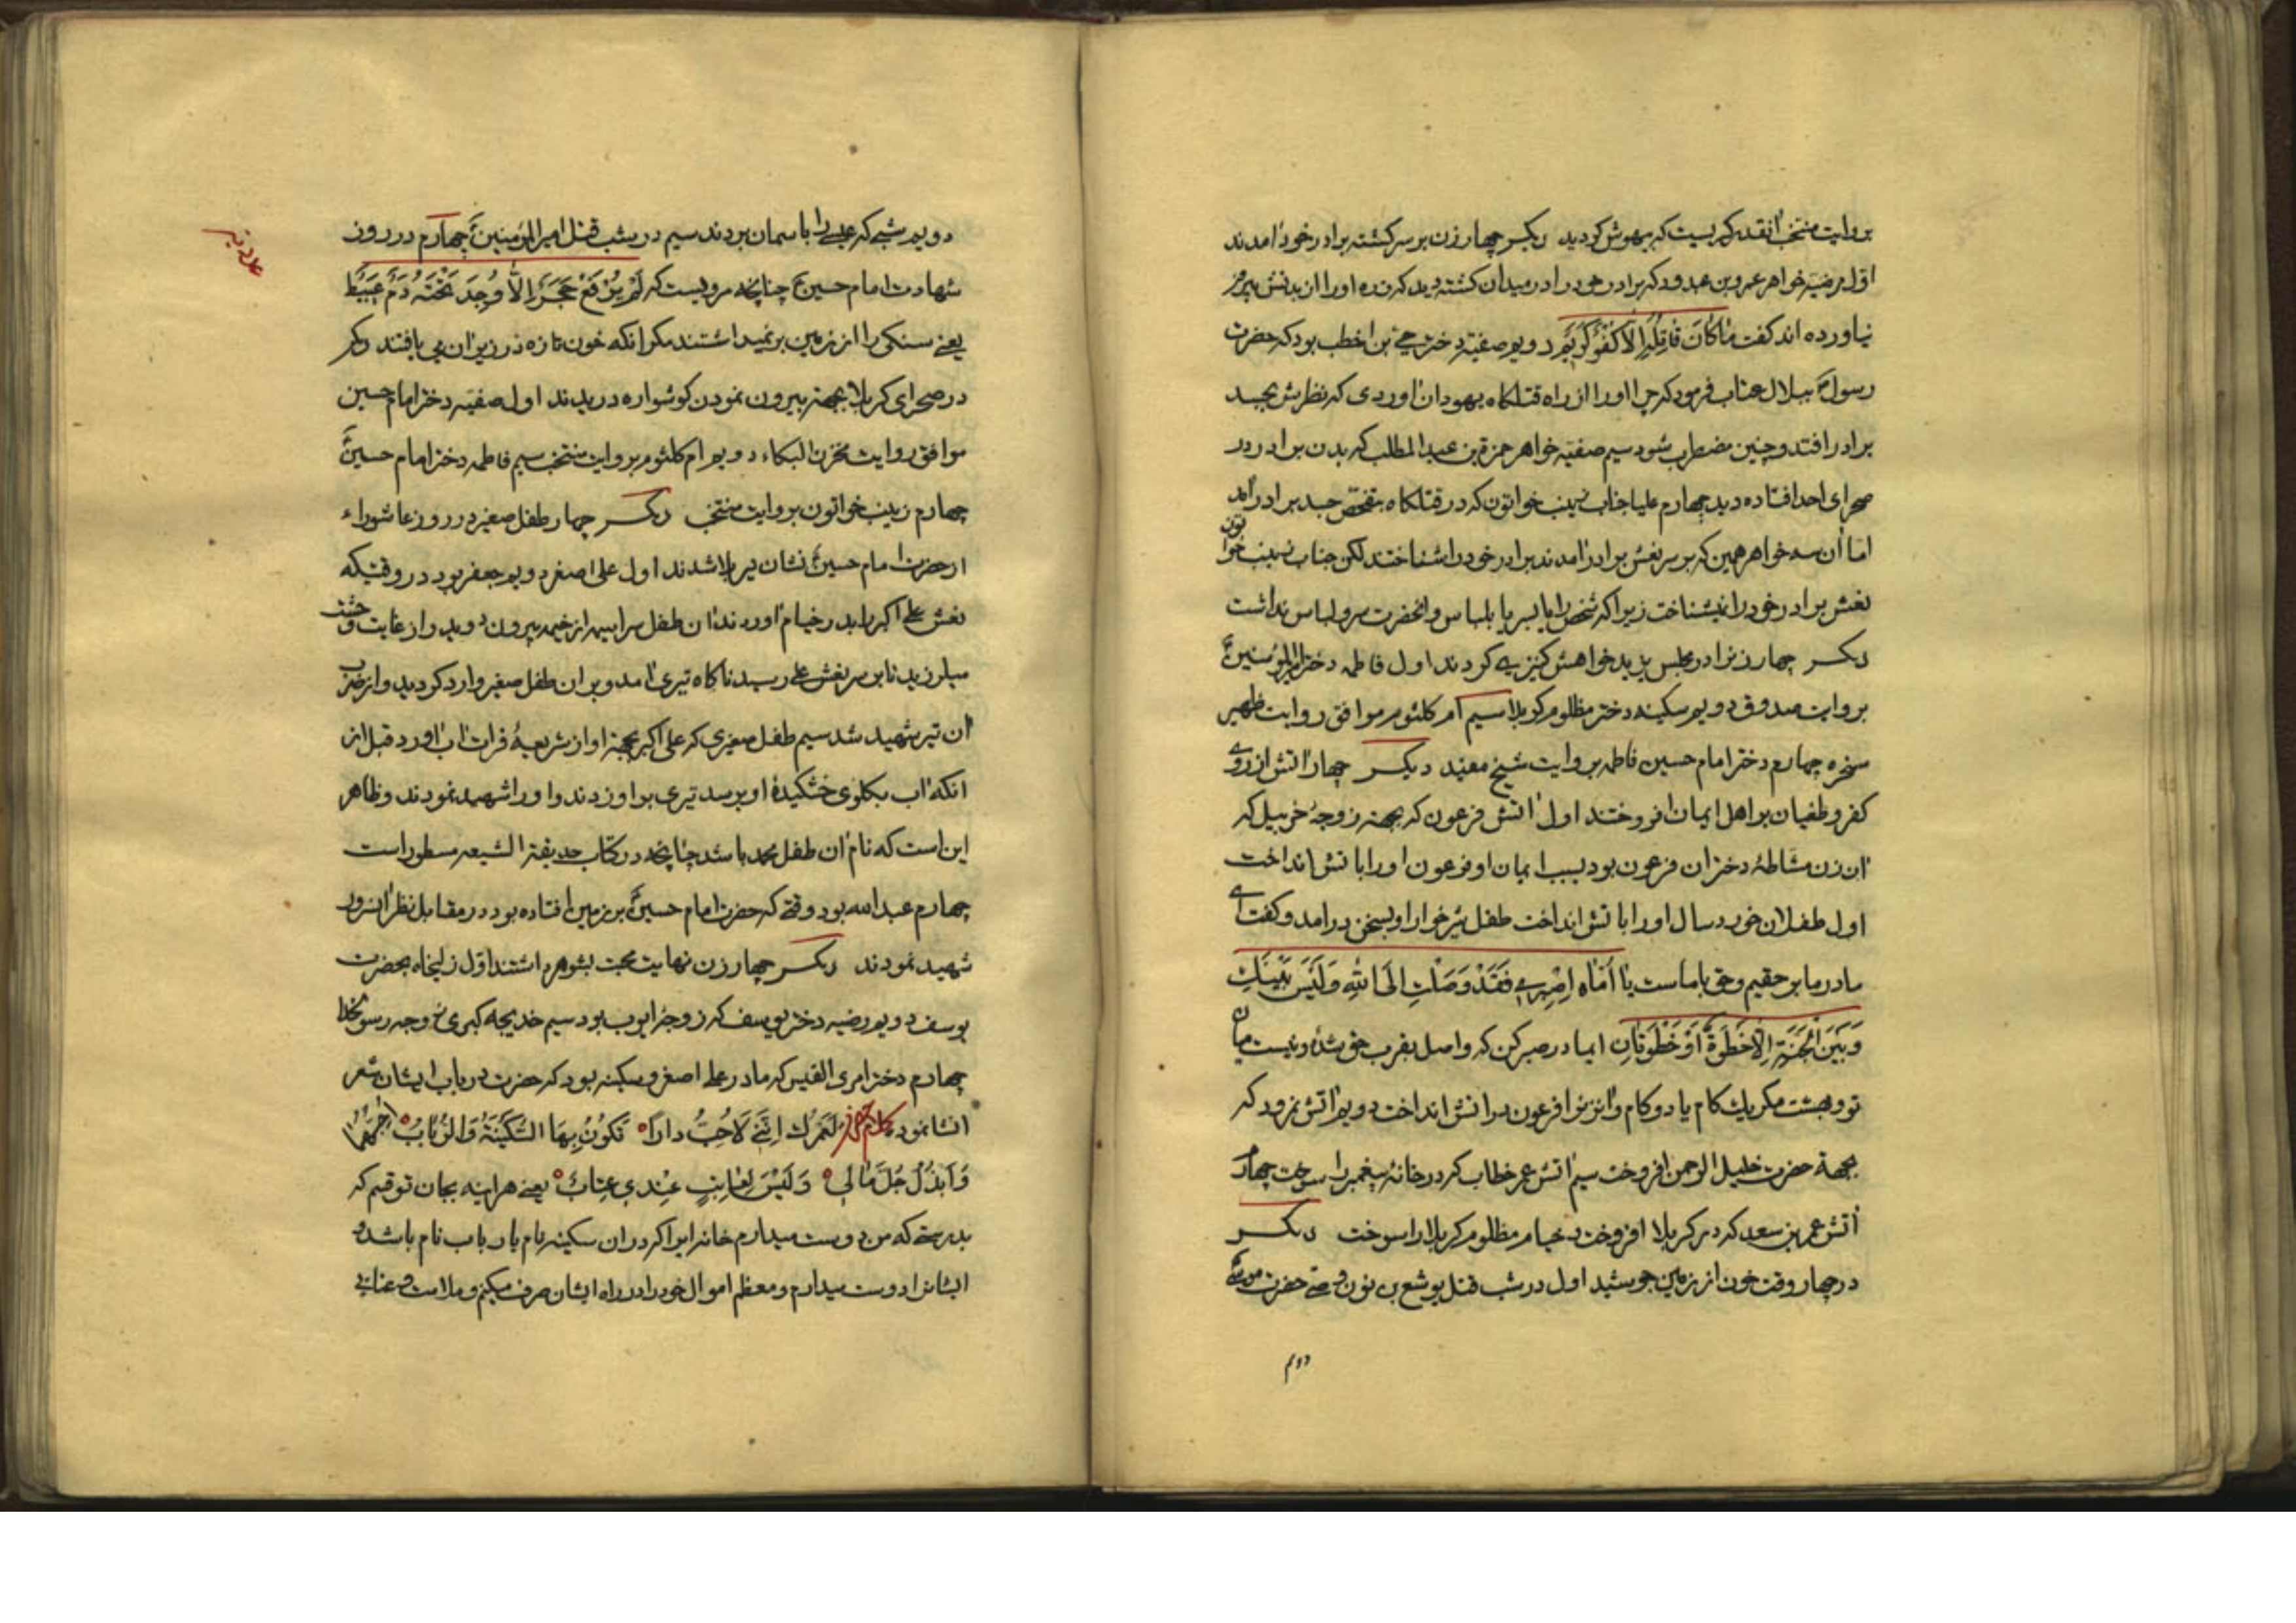 بروایت منتخب انقدر گریست که بیهوش گردید دیگر چهار زن بر سر کشته برادر خود امدند
اول مرضیه خواهر عمرو بن عبدود که برادر خود را در میدان کشته دید که زره او را از بدنش بیرون
نیاورده اند گفت مَا کَانَ قَاتِلُهُ اِلَّا کُفْوٌ کَرِیمٌ دویم صفیه دختر حیی بن اخطب بود که حضرت
رسول ص ببلال عتاب فرمود که چرا او را از راه قتلگاه یهودان اوردی که نظرش بجسد
برادر افتد و چنین مضطرب شود سیم صفیه خواهر حمزة بن عبدالمطلب که بدن برادر در
صحرای احد افتاده دید چهارم علیا جناب زینب خواتون که در قتلگاه بتفحص جسد برادر آمد
اما ان سه خواهر همین که بر سر نعش برادر امدند برادر خود را شناختند لکن جناب زینب خواتون
نعش برادر خود را نمیشناخت زیرا که شخص را یا بسر یا بلباس وانحضرت سر و لباس نداشت
دیگر چهار زن را در مجلس یزید خواهش کنیزی کردند اول فاطمه دختر امیرالمؤمنین ع
بروایت صدوق دویم سکینه دختر مظلوم کربلا سیم ام کلثوم موافق روایت ظهیر
سخره چهارم دختر امام حسین فاطمه بروایت شیخ مفید دیگر چهار اتش از روی
کفر و طغیان بر اهل ایمان افروختند اول اتش فرعون که بجهته زوجهٔ خربیل که
ان زن مشاطهٔ دختران فرعون بود بسبب ایمان او فرعون او را باتش انداخت
اول طفلان خورد سال او را باتش انداخت طفل شیرخوار او بسخن درامد و گفت ای
مادر ما بر حقیم و حق با ماست یَا اُمَّاهْ اِصْبِرِی فَقَدْ وَصَلْتِ اِلَی اللهِ وَلَیْسَ بَیْنَكِ
وَبَیْنَ الْجَنَّةِ اِلَّا خَطْوَةٌ اَوْ خَطْوَتَانِ ایمادر صبر کن که واصل بقرب حق شدهٔ و نیست میان
تو و بهشت مگر یك کام یا دو کام وانزن را فرعون در اتش انداخت دویم اتش نمرود که
بجهة حضرت خلیل الرحمن افروخت سیم اتش عمر خطاب که در خانه پیغمبر را سوخت چهارم
اتش عمر بن سعد که در کربلا افروخت و خیام مظلوم کربلا را سوخت دیگر
در چهار وقت خون از زمین جوشید اول در شب قتل یوشع بن نون وصی حضرت موسی
دویم
دویم شبی که عیسی را باسمان بردند سیم در شب قتل امیرالمؤمنین ع چهارم در روز
شهادت امام حسین ع چنانچه مرویست که لَمْ یُرْفَعْ حَجَرٌ اِلَّا وُجِدَ تَحْتَهُ دَمٌ عَبِیطٌ
یعنی سنکی را از زمین برنمیداشتند مکر انکه خون تازه در زیر ان می یافتند دیگر
در صحرای کربلا بجهته بیرون نمودن گوشواره دریدند اول صفیه دختر امام حسین
موافق روایت مخزن البکاء دویم ام کلثوم بروایت منتخب سیم فاطمه دختر امام حسین ع
چهارم زینب خواتون بروایت منتخب دیگر چهار طفل صغیر در روز عاشوراء
از حضرت امام حسین ع نشان تیر بلا شدند اول علی اصغر دویم جعفر بود در وقتیکه
نعش علی اکبر را بدر خیام اوردند ان طفل سراسیمه از خیمه بیرون دوید و از غایت وحشت
میلرزید تا بر سر نعش علی رسید ناکاه تیری امد و بر ان طفل صغیر وارد کردید و از ضرب
ان تیر شهید شد سیم طفل صغیری که علی اکبر بجهته او از شریعهٔ فرات اب اورد قبل از
انکه اب بکلوی خشکیدهٔ او برسد تیری بر او زدند و او را شهید نمودند و ظاهر
این است که نام ان طفل محمد باشد چنانچه در کتاب حدیقة الشیعه مسطور است
چهارم عبدالله بود وقتی که حضرت امام حسین ع بر زمین افتاده بود در مقابل نظر انسرور
شهید نمودند دیگر چهار زن نهایت محبت بشوهر داشتند اول زلیخاه بحضرت
یوسف دویم رضیه دختر یوسف که زوجه ایوب بود سیم خدیجه کبری زوجه رسولخدا
چهارم دختر امری القیس که مادر علی اصغر و سکینه بود که حضرت در باب ایشان شعر
انشا نموده لَعَمْرُك اِنَّنِی لَاُحِبُّ دَارًا تَکُونُ بِهَا السَّکِینَةُ وَالرُّبَابُ اُحِبُّهُمَا
وَاَبْذُلُ جُلَّ مَالِی وَلَیْسَ لِعَاتِبٍ عِنْدِی عِتَابٌ یعنی هراینه بجان تو قسم که
بدرستی که من دوست میدارم خانه ایرا که در ان سکینه نام یا رباب نام باشد و
ایشانرا دوست میدارم و معظم اموال خود را در راه ایشان صرف میکنم و ملامت و عتابی